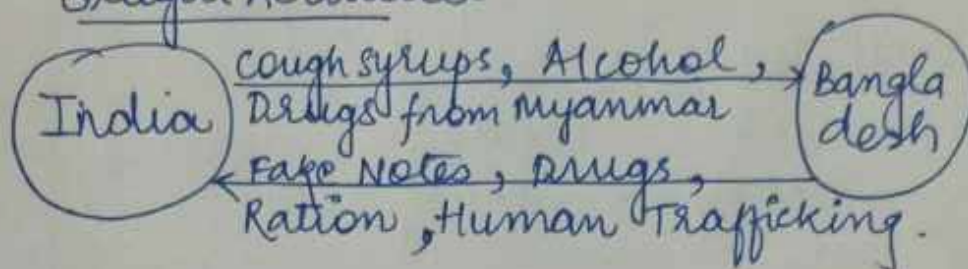 cough syrups, Alcohol,
India Drugs from Myanmar Bangla
desh
Fake Notes, Drugs,
Ration, Human Trafficking.